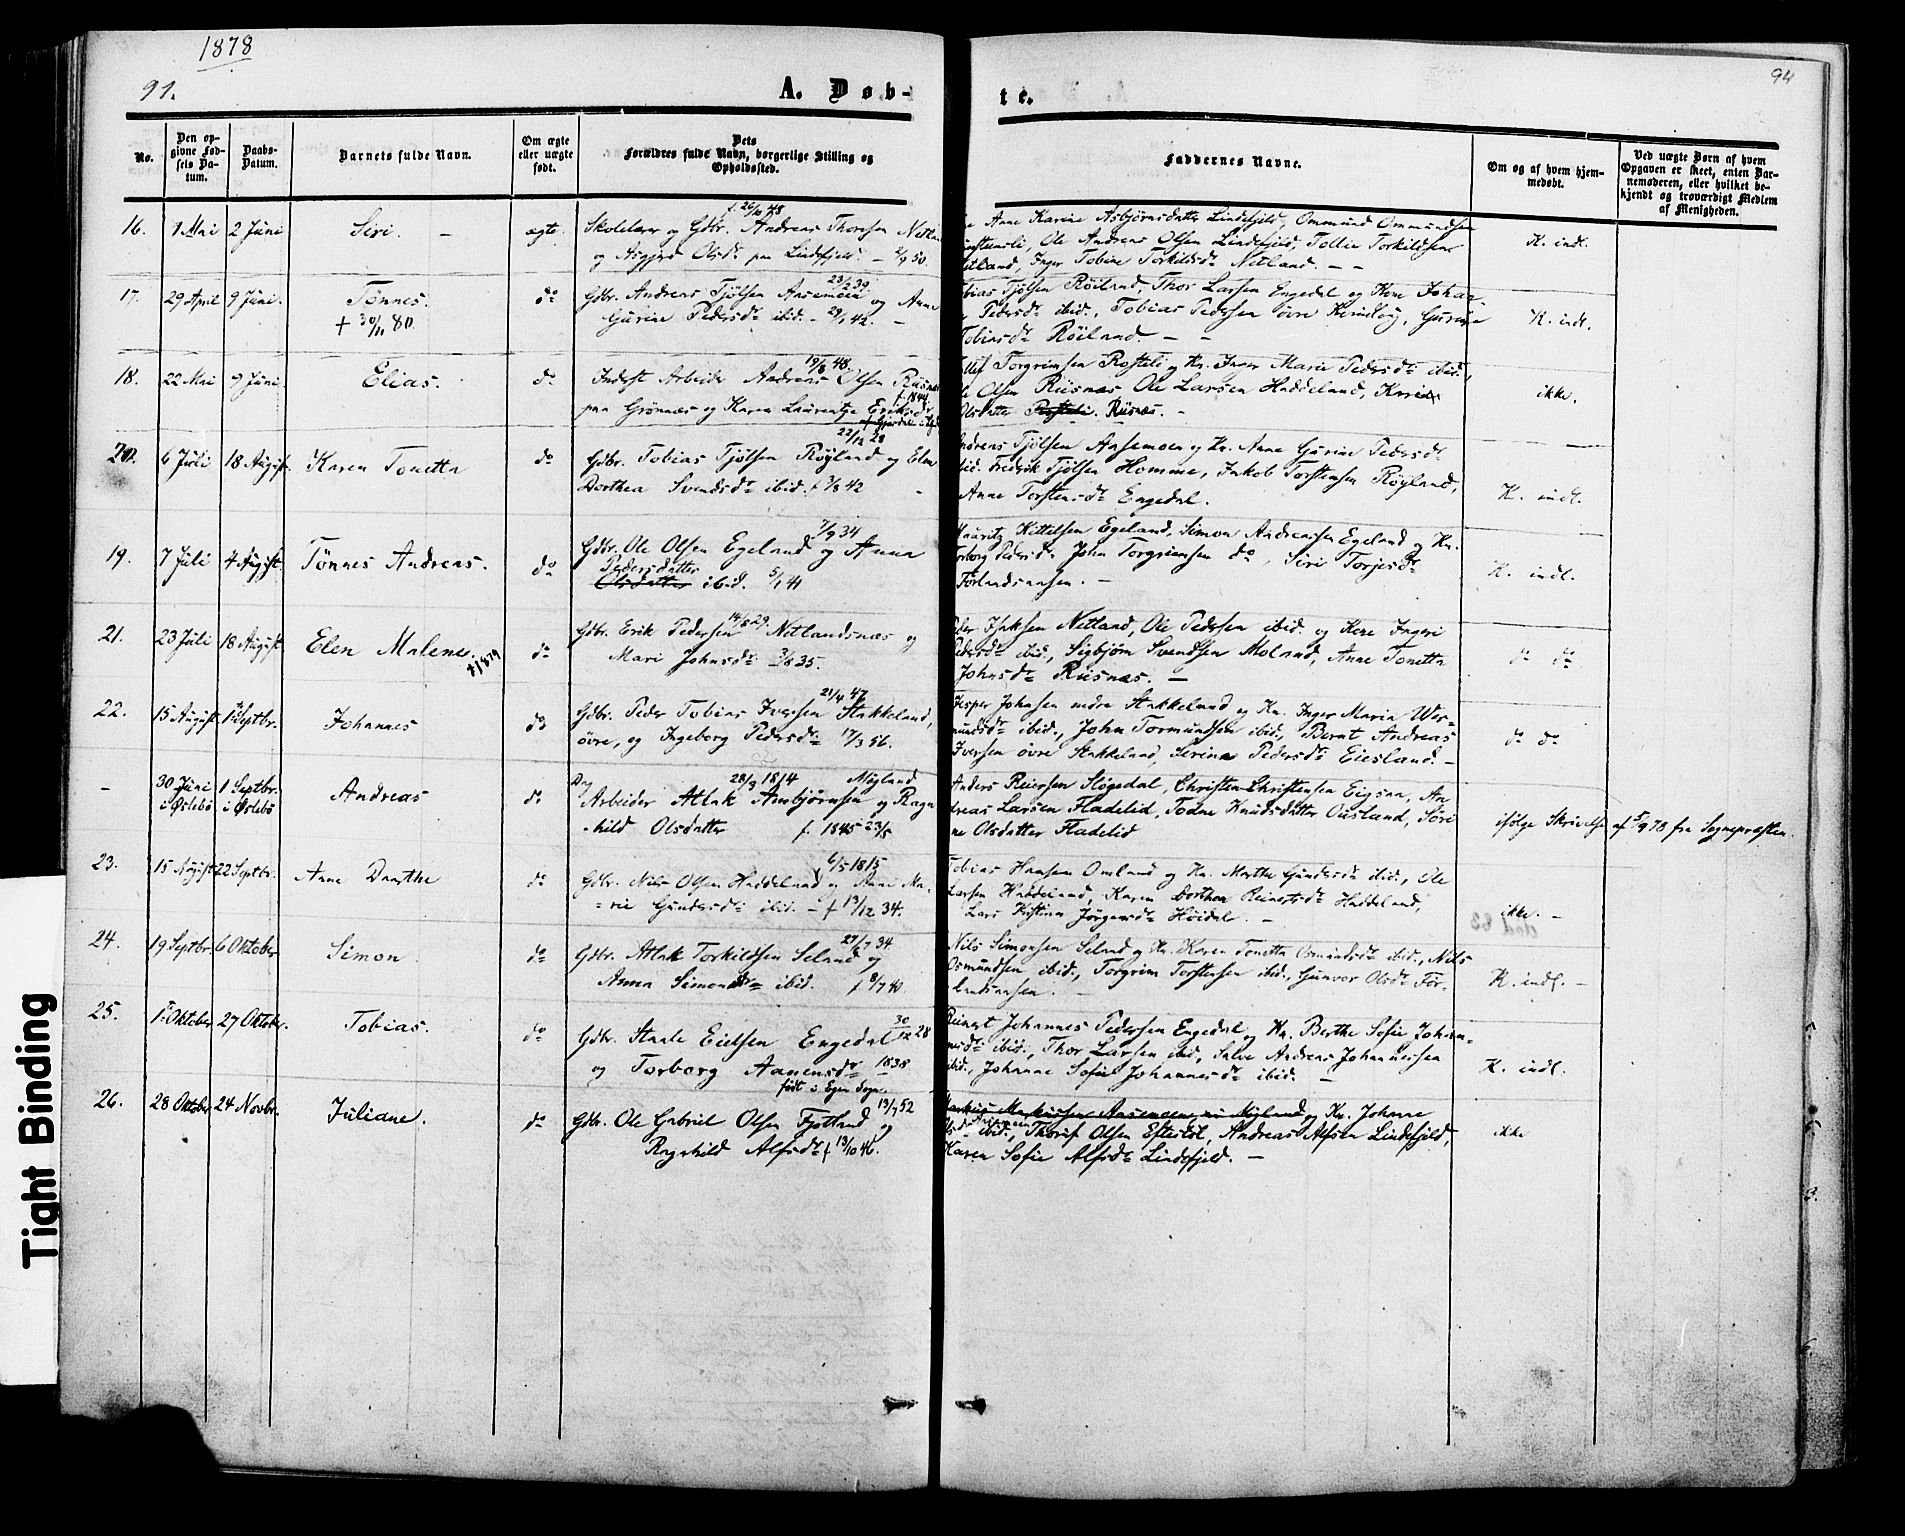 1878
91.
A. Døb-
te.
94
No.
Den opgivne Fødsels Datum.
Daabs-Datum.
Barnets fulde Navn.
Om ægte eller uægte født.
Dets Forældres fulde Navn, borgerlige Stilling og Opholdssted.
Faddernes Navne.
Om og af hvem hjemmedøbt.
Ved uægte Børn af hvem Opgaven er skeet, enten Barnemoderen, eller hvilket bekjendt og troværdigt Medlem af Menigheden.
16. 1 Mai 2 Juni Siri. – ægte.
f. 26/10 48
Skolelærer og Gdbr. Andreas Thoresen Netland
og Asgjerd Olsdr paa Lindefjeld. –
Anne Karine Asbjørnsdatter Lindefjeld, Ommund Ommundsen
Ole Andreas Olsen Lindefjeld, Tollie Torkildsen
Netland, Inger Tobine Torkildsdr Netland. – –
K. indl.
17. 29 April 9 Juni. Tønnes. do
+ 30/11 80.
23/2 39
Gdbr. Andreas Tjølsen Aasemoen og Anne
Gurine Pedersdr ibid. – 29/1 42. –
Tobias Tjølsen Røiland, Thor Larsen Engedal og Kone Johan-
e Pedersdr ibid., Tobias Pedersen øvre, Gurine
Tobiasdr Røiland. – –
K. indl.
18. 22 Mai 9 Juni. Elias. do
19/8 48.
Inderst Arbeider Andreas Olsen Risnæs
f. 1844
paa Grønnæs og Karen Laurentze Eriksdr
Torgrimsen Rosseli og Kn. Inger Marie Pedersdr ibid.,
Ole Olsen Risnæs Ole Larsen Haddeland, Karen
Olsdatter Rosseli. Risnæs. –
ikke.
20. 6 Juli 18 August. Karen Tonetta do
22/12 28
Gdbr. Tobias Tjølsen Røyland og Elen
Dorthea Svendsdr ibid. f 3/8 42 –
Andreas Tjølsen Aasemoen og Kn. Anne Gurine Pedersdr
ibid. Fredrik Tjølsen Homme, Jakob Torstensen Røyland,
Anne Torstensdr Engedal.
K. indl.
19. 7 Juli 4 August. Tønnes Andreas. do
7/9 34
Gdbr. Ole Olsen Egeland og Anna
Pedersdatter
Olsdatter ibid. 5/1 41
Mauritz Kittelsen Egeland, Simon Andreassen Egeland og Kn.
Torborg Pedersdr John Torgrimsen do, Siri Torjesdr
Førlandsaasen. –
K. indl.
21. 23 Juli 18 August. Elen Malene. do
+ 1879
14/8 29.
Gdbr. Erik Pedersen Netlandsnæs og
Mari Johnsdr 3/8 35.
Peder Isaksen Netland, Ole Pedersen ibid. og Kone Ingeri
Pedersdr ibid., Sigbjørn Svendsen Moland, Anne Tonetta
Johnsdr Risnæs. –
do do
22. 15 August. 1 Septbr. Johannes do
21/4 47
Gdbr. Peder Tobias Iversen Stakkeland,
øvre, og Ingeborg Pedersdr 17/3 56.
Jesper Johnsen nedre Stakkeland og Kn. Inger Maria Wer-
mundsdr ibid., John Tormundsen ibid., Bernt Andreas
Iversen øvre Stakkeland, Serina Pedersdr Eiesland. –
do do
– 30 Juni i Øslebø 1 Septbr. i Øslebø Andreas do
28/3 1814 Møgland
Arbeider Atlak Ambjørnsen og Ragn
-hild Olsdatter f. 1845 23/5
Anders Reiersen Sløgedal, Christen Christensen Eigsaa, An-
dreas Larsen Fladelid, Todne Knudsdatter Ousland, Søri
ne Olsdatter Fladelid
ifølge Skrivelse af 5/9 78 fra Sognepræsten.
23. 15 August 22 Septbr. Anne Dorthe do
6/5 1815
Gdbr. Nils Olsen Haddeland og Anne Ma-
=rie Gundersdr ibid. – f 13/12 34.
Tobias Hansen Omland og Kn. Marthe Gundersdr ibid., Ole
Larsen Haddeland, Karen Dorthea Reinertsdr Haddeland,
Lars Kistian Jørgensdr Høidal. –
ikke. –
24. 19 Septbr. 6 Oktober Simon do
27/7 34
Gdbr. Atlak Torkildsen Seland og
Anna Simonsdr ibid. f 8/7 40
Nils Simonsen Seland og Kn. Karen Tonetta Osmundsdr ibid., Nils
Osmundsen ibid., Torgrim Torstensen ibid., Gunvor Olsdr Før-
landsaasen. –
K. indl. –
25. 1 Oktober 27 Oktober. Tobias. do
30/12 28
Gdbr. Staale Eielsen Engedal
og Torborg Aanensdr 1838
født i Egen Sogn.
Reinert Johannes Pedersen Engedal og Kn. Berthe Sofie Johan-
nesdr ibid., Thor Larsen ibid., Salve Andreas Johannessen
ibid., Johanne Sofie Johannesdr ibid. –
K. indl.
26. 28 Oktober 24 Novbr. Juliane. do
13/7 52
Gdbr. Ole Gabriel Olsen Fjotland og
Ragnhild Alfsdr f 13/10 46.
Markus Markussen Aasemoen Møgland og Kn. Johanne
ibid., Thorif Olsen Eftestøl, Andreas Alfsen Lindefjeld,
Karen Sofie Alfsdr Lindefjeld. –
ikke
Tight Binding